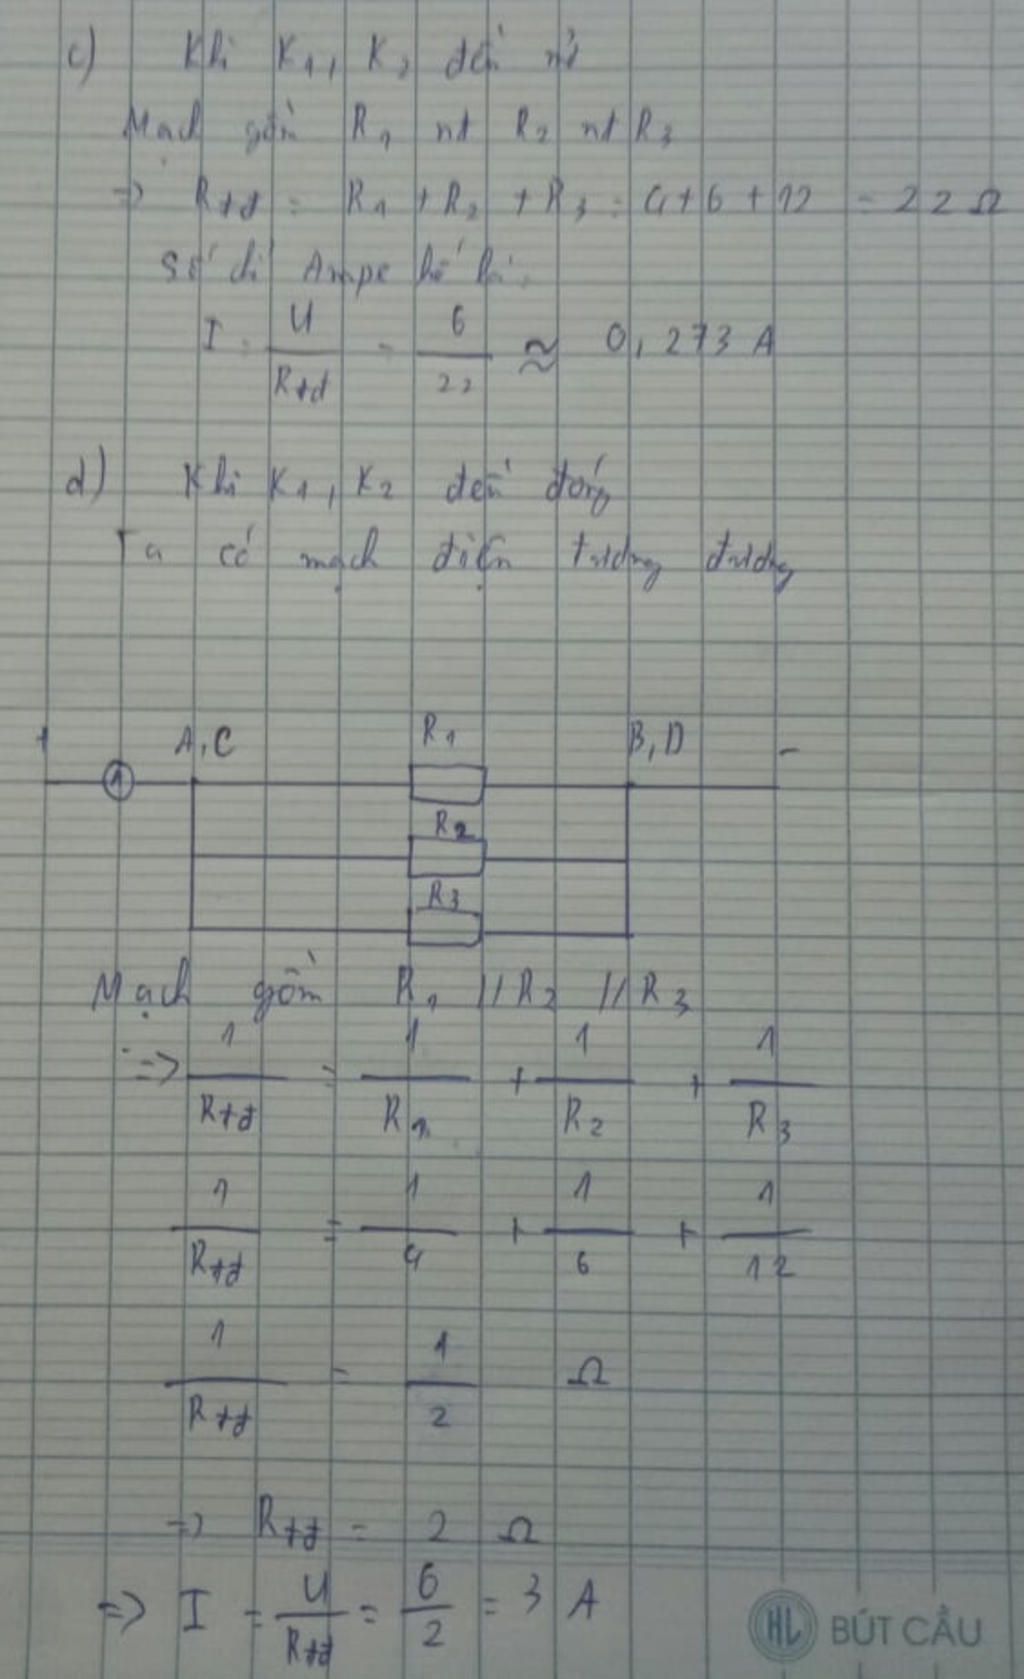 c) Khi K₁, K₂ đều mở
Mạch gồm R₁ nt R₂ nt R₃
=> Rtđ = R₁ + R₂ + R₃ = 4 + 6 + 12 = 22 Ω
Số chỉ Ampe kế là:
I = U/Rtđ = 6/22 ≈ 0,273 A
d) Khi K₁, K₂ đều đóng
Ta có mạch điện tương đương
+ A, C R₁ B, D -
R₂
R₃
Mạch gồm R₁ // R₂ // R₃
=> 1/Rtđ = 1/R₁ + 1/R₂ + 1/R₃
1/Rtđ = 1/4 + 1/6 + 1/12
1/Rtđ = 1/2 Ω
=> Rtđ = 2 Ω
=> I = U/Rtđ = 6/2 = 3 A
HL BÚT CẦU